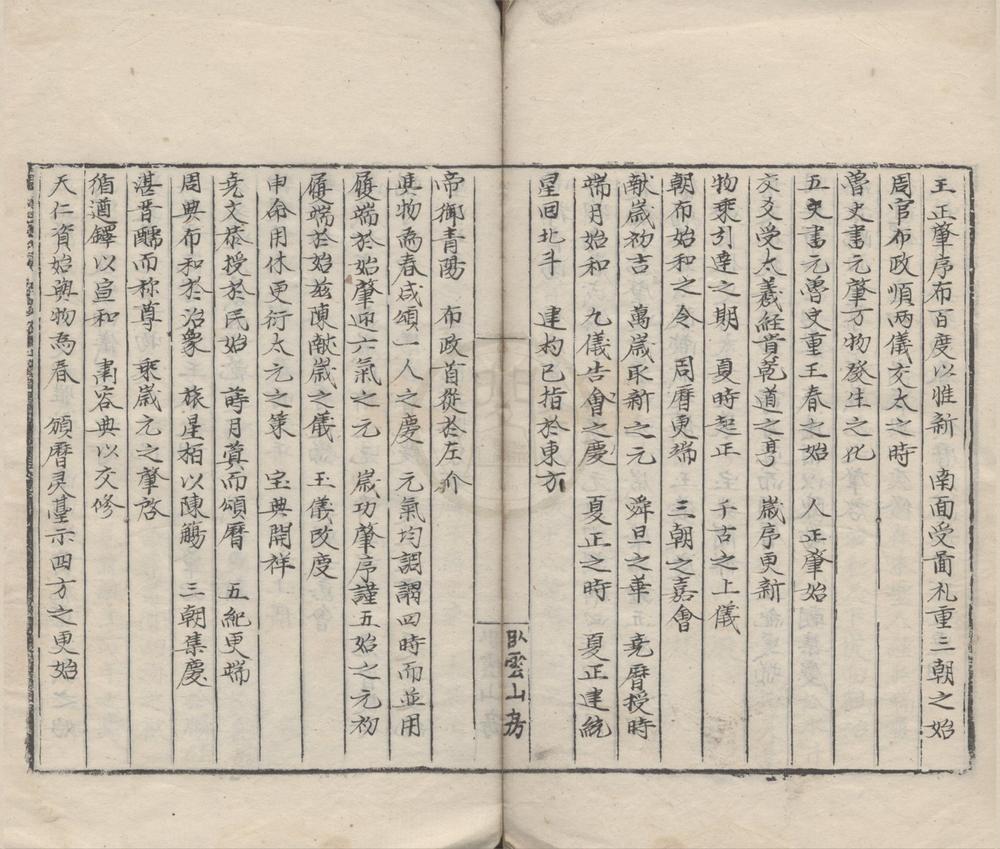 王正肇序布百度以惟新　南面受啚礼重三朝之始
周官布政順两儀交太之時
魯史書元肇万物發生之化
五史書元魯史重王春之始　人正肇始
交爻受太羲経肯乾道之亨　歳序更新
物乘引達之期　夏時起正　千古之上儀
朝布始和之令　周曆更端　三朝之嘉會
献歳初吉　萬歳聅新之元　舜旦之華　尭曆授時
端月始和　九儀告會之慶　夏正之時　夏正建統
星回北斗　建杓已指於東方
卧雲山房
帝御青陽　布政首從於左介
與物爲春咸頌一人之慶　元氣均調謂四時而並用
履端於始肇迎六氣之元　歳功肇序謹五始之元初
履端於始兹陳献歳之儀　玉儀改度
申命用休更衍太元之筞　宝典開祥
尭文恭授於民始　蒔月蓂而頒曆　五紀更端
周典布和於治象　旅星栢以陳觴　三朝集慶
湛晋醹而称尊　乘歳元之肇啓
循遒鐸以宣和　肅容典以交修
天仁資始與物爲春　頒曆灵䑓示四方之更始